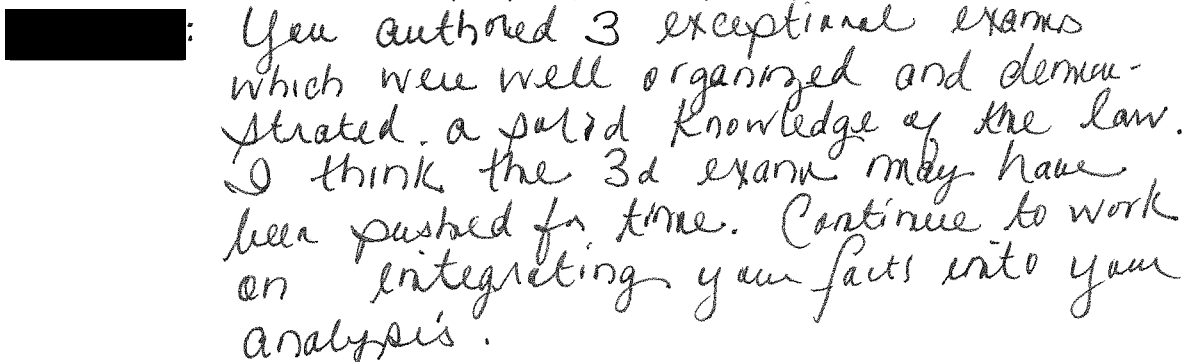 : You authored 3 exceptional exams
which were well organized and demon-
strated a solid knowledge of the law.
I think the 3d exam may have
been pushed for time. Continue to work
on integrating your facts into your
analysis.